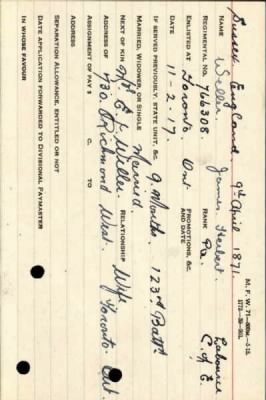 M. F. W. 71—
Sussex England 9th April 1871. Labourer
C of E.
NAME Weller James Herbert
REGIMENTAL NO. 766308 RANK Pte.
ENLISTED AT Toronto Ont PROMOTIONS, &C. AND DATE
DATE 11-2-17.
IF SERVED PREVIOUSLY, STATE UNIT, &C. 9 Months 123rd Battn
MARRIED, WIDOWER, OR SINGLE Married.
NEXT OF KIN Mrs. E. J. Weller. RELATIONSHIP Wife
ADDRESS 730 Richmond West. Toronto. Ont.
ASSIGNMENT OF PAY $ C. TO
ADDRESS
SEPARATION ALLOWANCE, ENTITLED OR NOT
DATE APPLICATION FORWARDED TO DIVISIONAL PAYMASTER
IN WHOSE FAVOUR